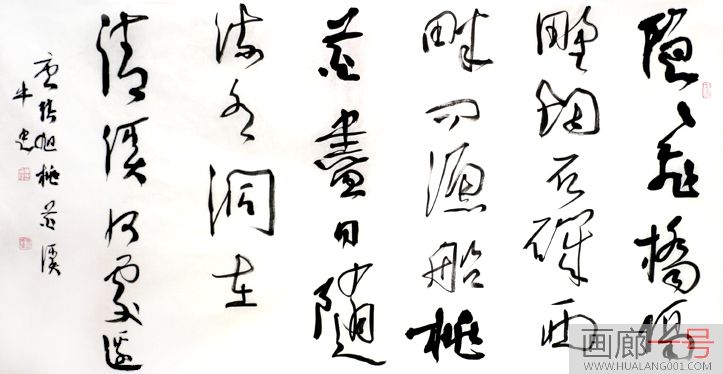 隱〻飛橋隔
野烟石磯西
畔問漁船桃
花盡日隨
流水洞在
清溪何處邊
唐張旭桃花溪
牛
画廊一号
WWW.HUALANG001.COM